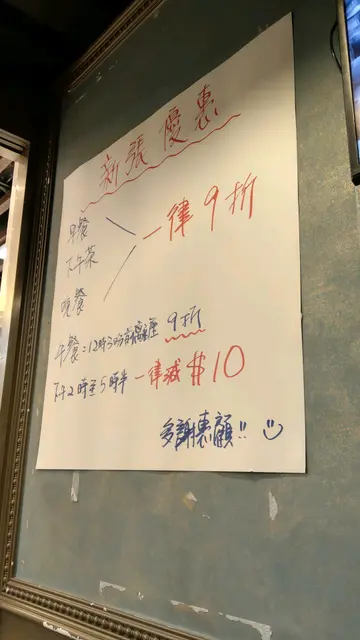 新張優惠
早餐
下午茶
晚餐
一律9折
午餐:12時30分前離座 9折
下午2時至5時半 一律減 $10
多謝惠顧!!